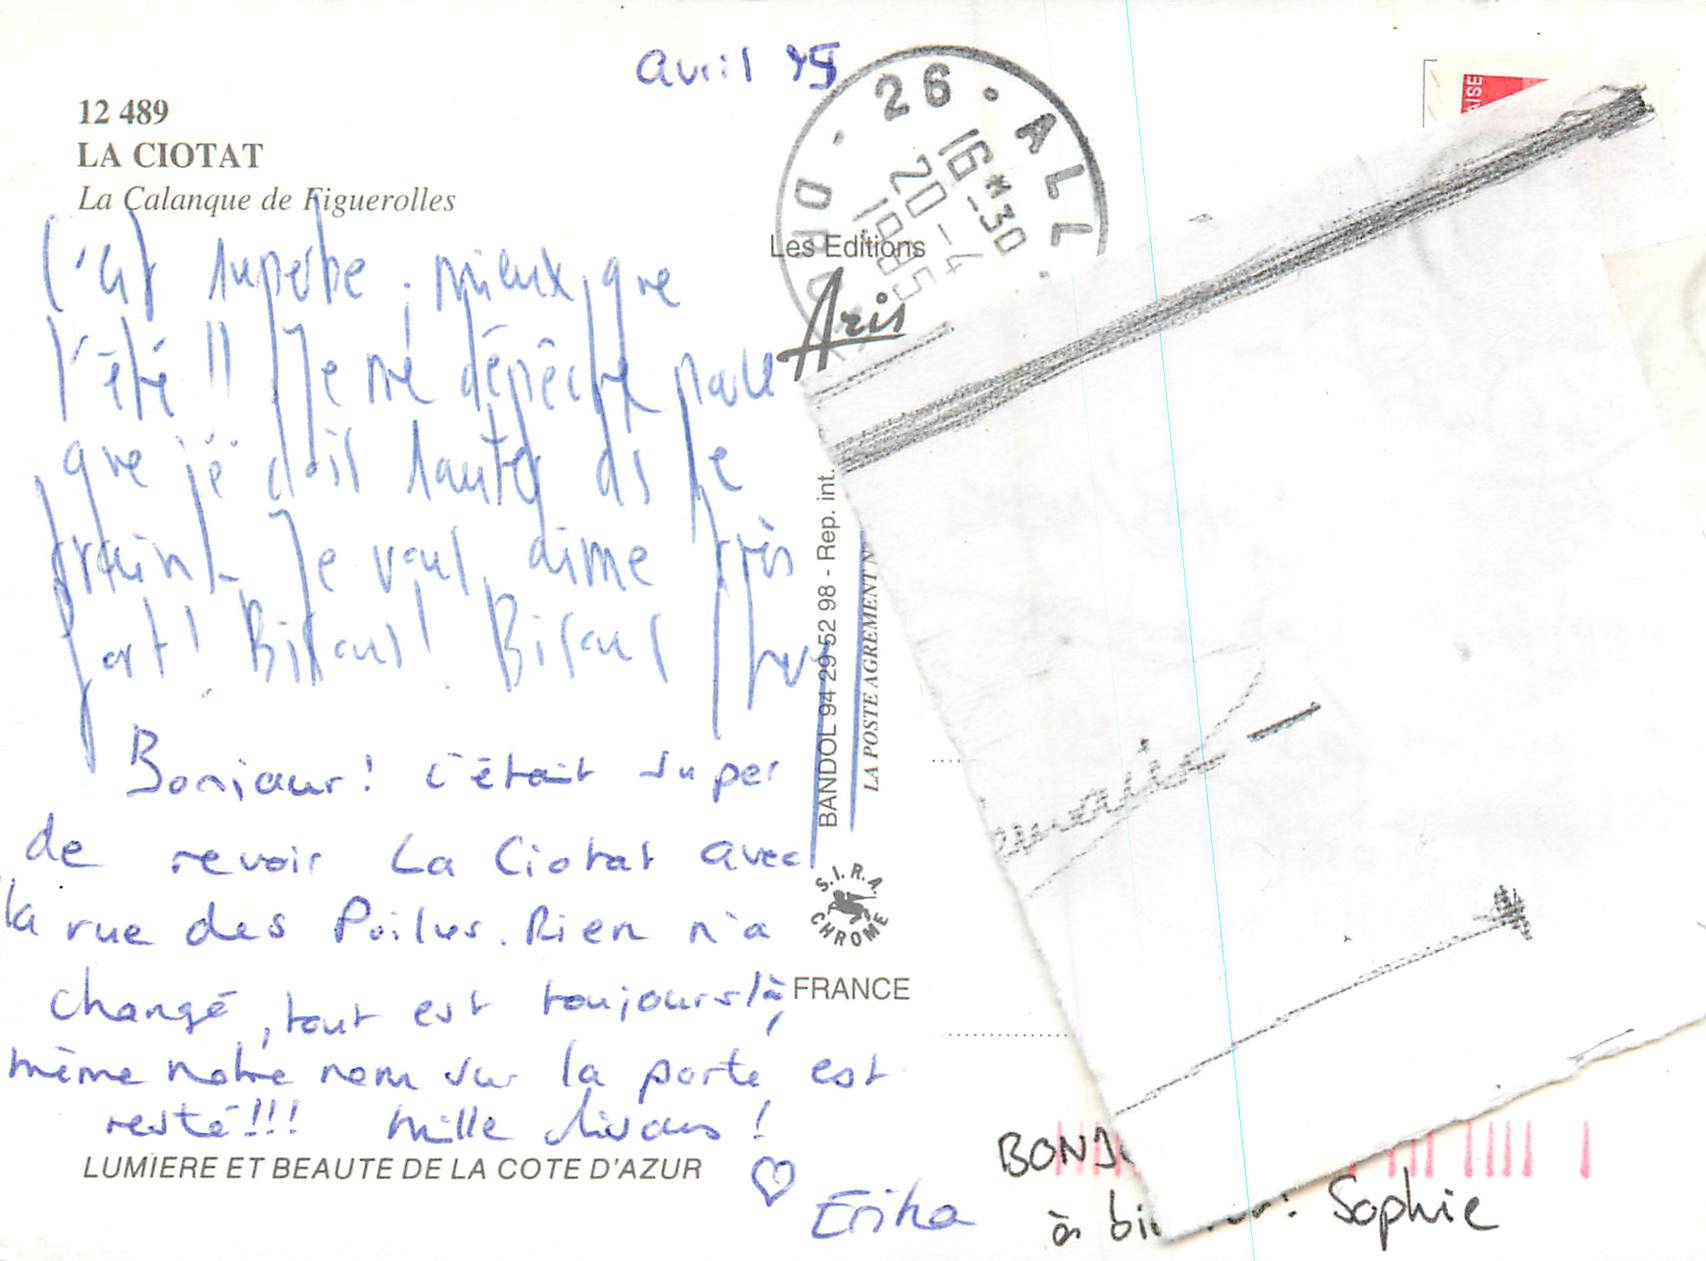 avril 95
12 489
LA CIOTAT
La Calanque de Figuerolles
26 · ALL
DRO
16 * 30
20 - 4
1995
Les Editions
Aris
C'est superbe, mieux que
l'été !! Je me dépêche parce
que je dois sauter ds le
train. Je vous aime très
fort ! Bisous ! Bisous
Bonjour ! c'était super
de revoir La Ciotat avec
la rue des Poilus. Rien n'a
changé, tout est toujours là,
même notre nom sur la porte est
resté !!! Mille bisous !
♡ Erika
LUMIERE ET BEAUTE DE LA COTE D'AZUR
BANDOL 94 29 52 98 - Rep. int.
LA POSTE AGREMENT N°
S.I.R.A.
CHROME
FRANCE
AISE
BONJ
à bi
: Sophie